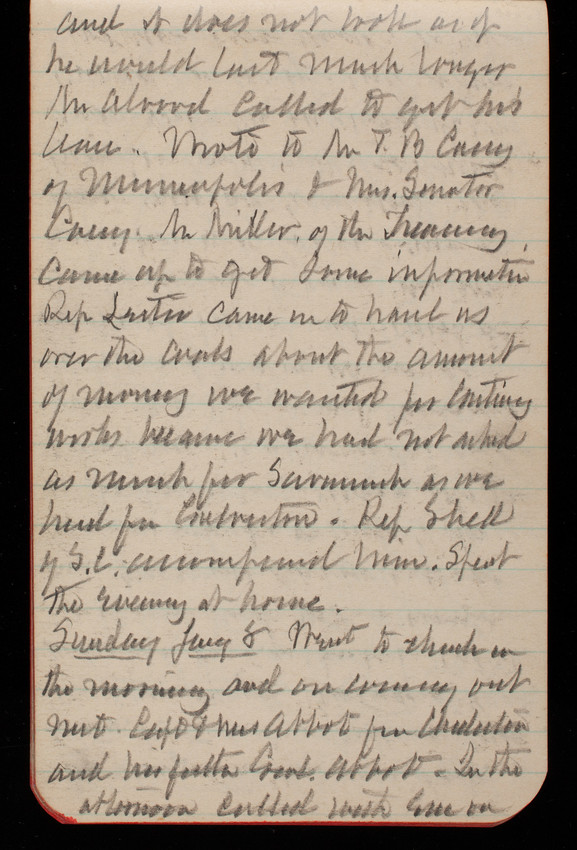 and it does not look as if
he would last much longer
Mr Alvord called to get his
leave. Wrote to Mr T. B Casey
of Minneapolis & Mrs. Senator
Casey. Mr Miller, of the Treasury,
came up to get some informatin
Rep Lester came in to haul us
over the coals about the amount
of money we wanted for Continu
works because we had not asked
as much for Savannah as we
had for Galveston. Rep Shell
of S.C. accompanied him. Spent
the evening at home.
Sunday Jany 8 Went to church in
the morning and on coming out
met Capt & Mrs Abbot from Charleston
and his father Genl. Abbot. In the
afternoon called with Em on